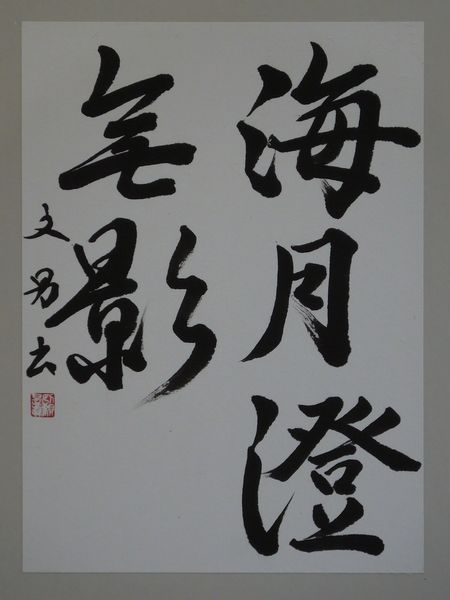 海月澄
無影
文男書